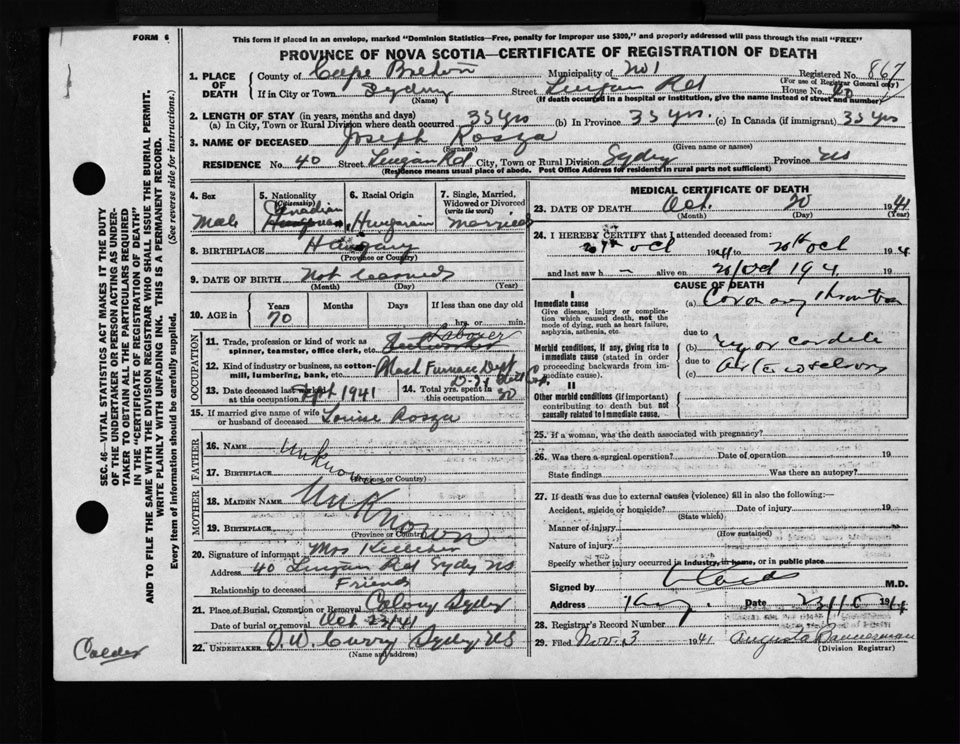 FORM 6
This form if placed in an envelope, marked "Dominion Statistics—Free, penalty for improper use $300," and properly addressed will pass through the mail "FREE"
PROVINCE OF NOVA SCOTIA—CERTIFICATE OF REGISTRATION OF DEATH
1. PLACE OF DEATH County of Cape Breton Municipality of No 1 Registered No. 867
(For use of Registrar General only)
If in City or Town Sydney Street Lingan Rd House No. 40
(Name) (If death occurred in a hospital or institution, give the name instead of street and number)
2. LENGTH OF STAY (in years, months and days)
(a) In City, Town or Rural Division where death occurred 35 yrs (b) In Province 35 yrs. (c) In Canada (if immigrant) 35 yrs
3. NAME OF DECEASED Joseph Rosza
(Surname) (Given name or names)
RESIDENCE No. 40 Street Lingan Rd City, Town or Rural Division Sydney Province NS
(Residence means usual place of abode. Post Office Address for residents in rural parts not sufficient)
4. Sex 5. Nationality (Citizenship) 6. Racial Origin 7. Single, Married, Widowed or Divorced (write the word)
Male Canadian Hungarian married
8. BIRTHPLACE Hungary
(Province or Country)
9. DATE OF BIRTH Not learned
(Month) (Day) (Year)
10. AGE in Years Months Days If less than one day old
70 hrs. or min.
OCCUPATION
11. Trade, profession or kind of work as spinner, teamster, office clerk, etc. Labourer
12. Kind of industry or business, as cotton-mill, lumbering, bank, etc. Furnace Dept
13. Date deceased last worked at this occupation Sept 1941 14. Total yrs. spent in this occupation 30
15. If married give name of wife or husband of deceased Louise Rosza
FATHER
16. NAME Unknown
17. BIRTHPLACE
(Province or Country)
MOTHER
18. MAIDEN NAME Unknown
19. BIRTHPLACE
(Province or Country)
20. Signature of informant Mrs Kelleher
Address 40 Lingan Rd Sydney NS
Relationship to deceased Friend
21. Place of Burial, Cremation or Removal Calvary Sydney
Date of burial or removal Oct 23/41
22. UNDERTAKER D. W. Curry Sydney NS
(Name and address)
MEDICAL CERTIFICATE OF DEATH
23. DATE OF DEATH Oct. 20 1941
(Month) (Day) (Year)
24. I HEREBY CERTIFY that I attended deceased from:
oct 1941 to 20th oct 194
and last saw h alive on 20/Oct 194 19
CAUSE OF DEATH
I
Immediate cause
Give disease, injury or complication which caused death, not the mode of dying, such as heart failure, asphyxia, asthenia, etc.
(a) Coronary thrombo
due to
Morbid conditions, if any, giving rise to immediate cause (stated in order proceeding backwards from immediate cause).
(b) myocardial
due to
(c)
II
Other morbid conditions (if important) contributing to death but not causally related to immediate cause.
25. If a woman, was the death associated with pregnancy?
26. Was there a surgical operation? Date of operation 19
State findings Was there an autopsy?
27. If death was due to external causes (violence) fill in also the following:—
Accident, suicide or homicide? Date of injury 19
(State which)
Manner of injury
(How sustained)
Nature of injury
Specify whether injury occurred in industry, in home, or in public place
Signed by M.D.
Address Date
28. Registrar's Record Number
29. Filed Nov. 3 1941 Augusta Bannerman
(Division Registrar)
SEC. 46—VITAL STATISTICS ACT MAKES IT THE DUTY
OF THE UNDERTAKER OR PERSON ACTING AS UNDER-
TAKER TO OBTAIN ALL THE PARTICULARS REQUIRED
IN THE "CERTIFICATE OF REGISTRATION OF DEATH"
AND TO FILE THE SAME WITH THE DIVISION REGISTRAR WHO SHALL ISSUE THE BURIAL PERMIT.
WRITE PLAINLY WITH UNFADING INK. THIS IS A PERMANENT RECORD.
Every item of information should be carefully supplied. (See reverse side for instructions.)